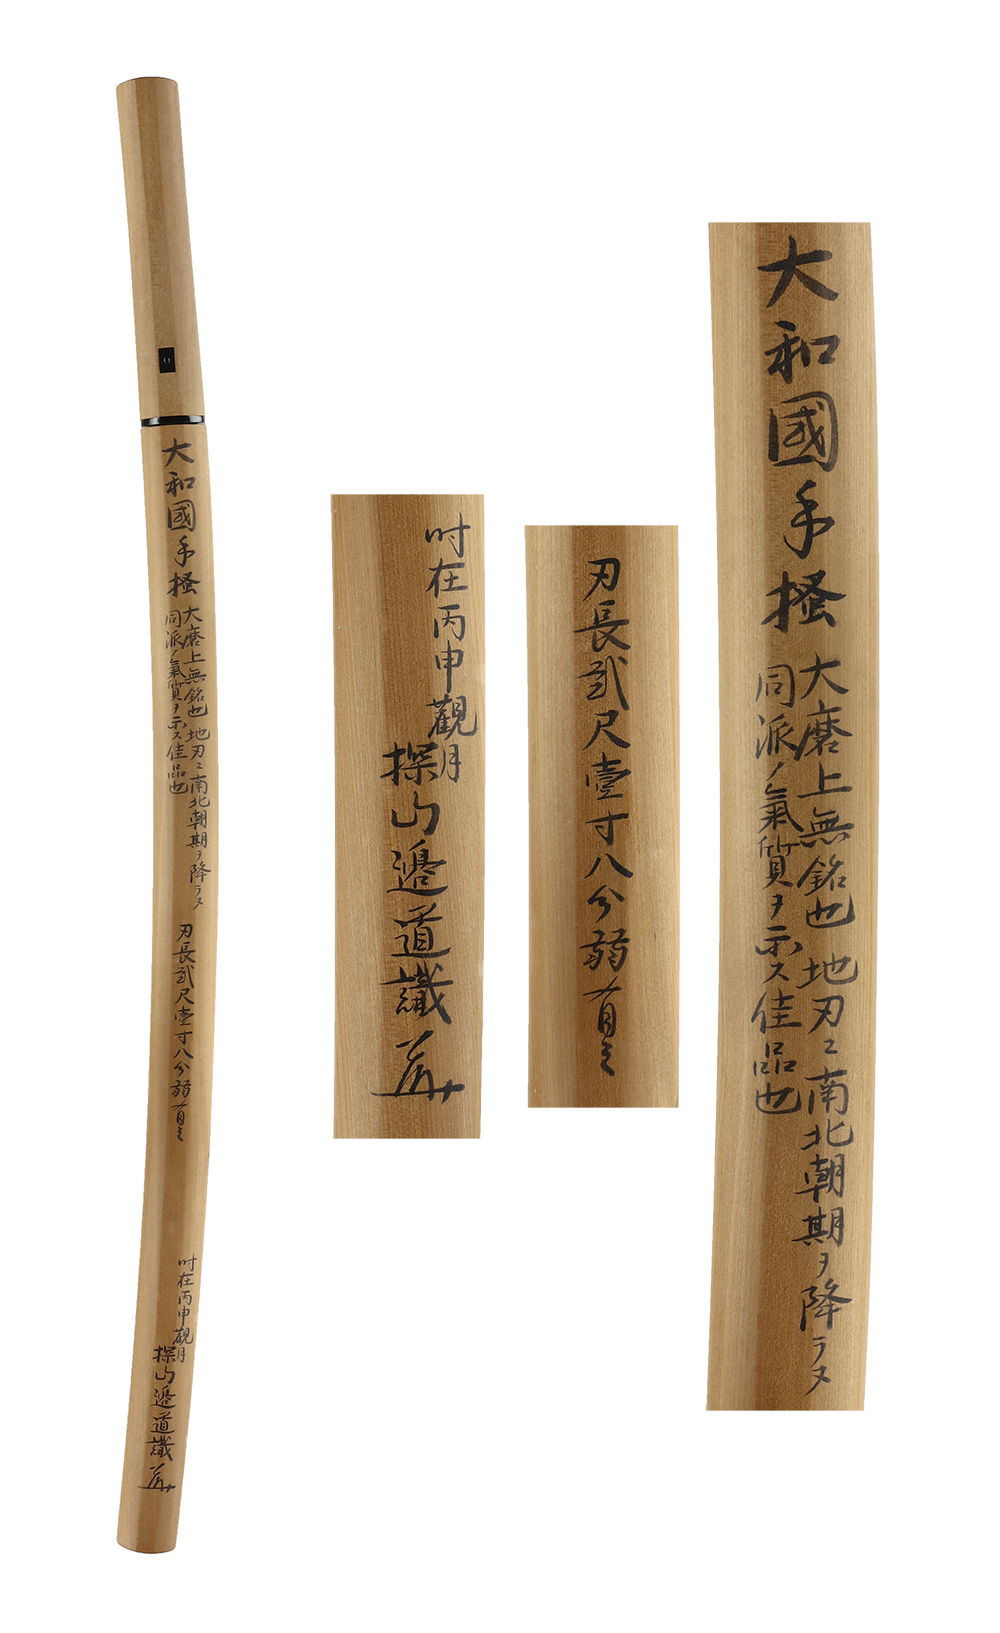 大和國手掻
大磨上無銘也地刃ニ南北朝期ヲ降ラヌ
同派ノ氣質ヲ示ス佳品也
刃長貳尺壹寸八分弱有之
时在丙申觀月
探山邉道識
大和國手掻
大磨上無銘也地刃ニ南北朝期ヲ降ラヌ
同派ノ氣質ヲ示ス佳品也
刃長貳尺壹寸八分弱有之
时在丙申觀月
探山邉道識